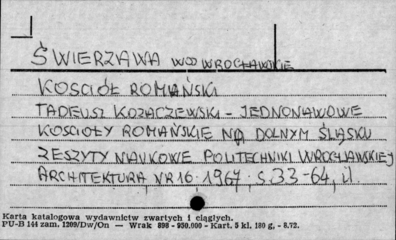 ŚWIERZAWA WOJ WROCŁAWSKIE
KOŚCIÓŁ ROMAŃSKI
TADEUSZ KOZACZEWSKI - JEDNONAWOWE
KOŚCIOŁY ROMAŃSKIE NA DOLNYM ŚLĄSKU
ZESZYTY NAUKOWE POLITECHNIKI WROCŁAWSKIEJ
ARCHITEKTURA NR 16. 1967, s. 33-64, il.
Karta katalogowa wydawnictw zwartych i ciągłych.
PU-B 144 zam. 1209/Dw/On — Wrak 898 - 950.000 - Kart. 5 kl. 180 g. - 8.72.